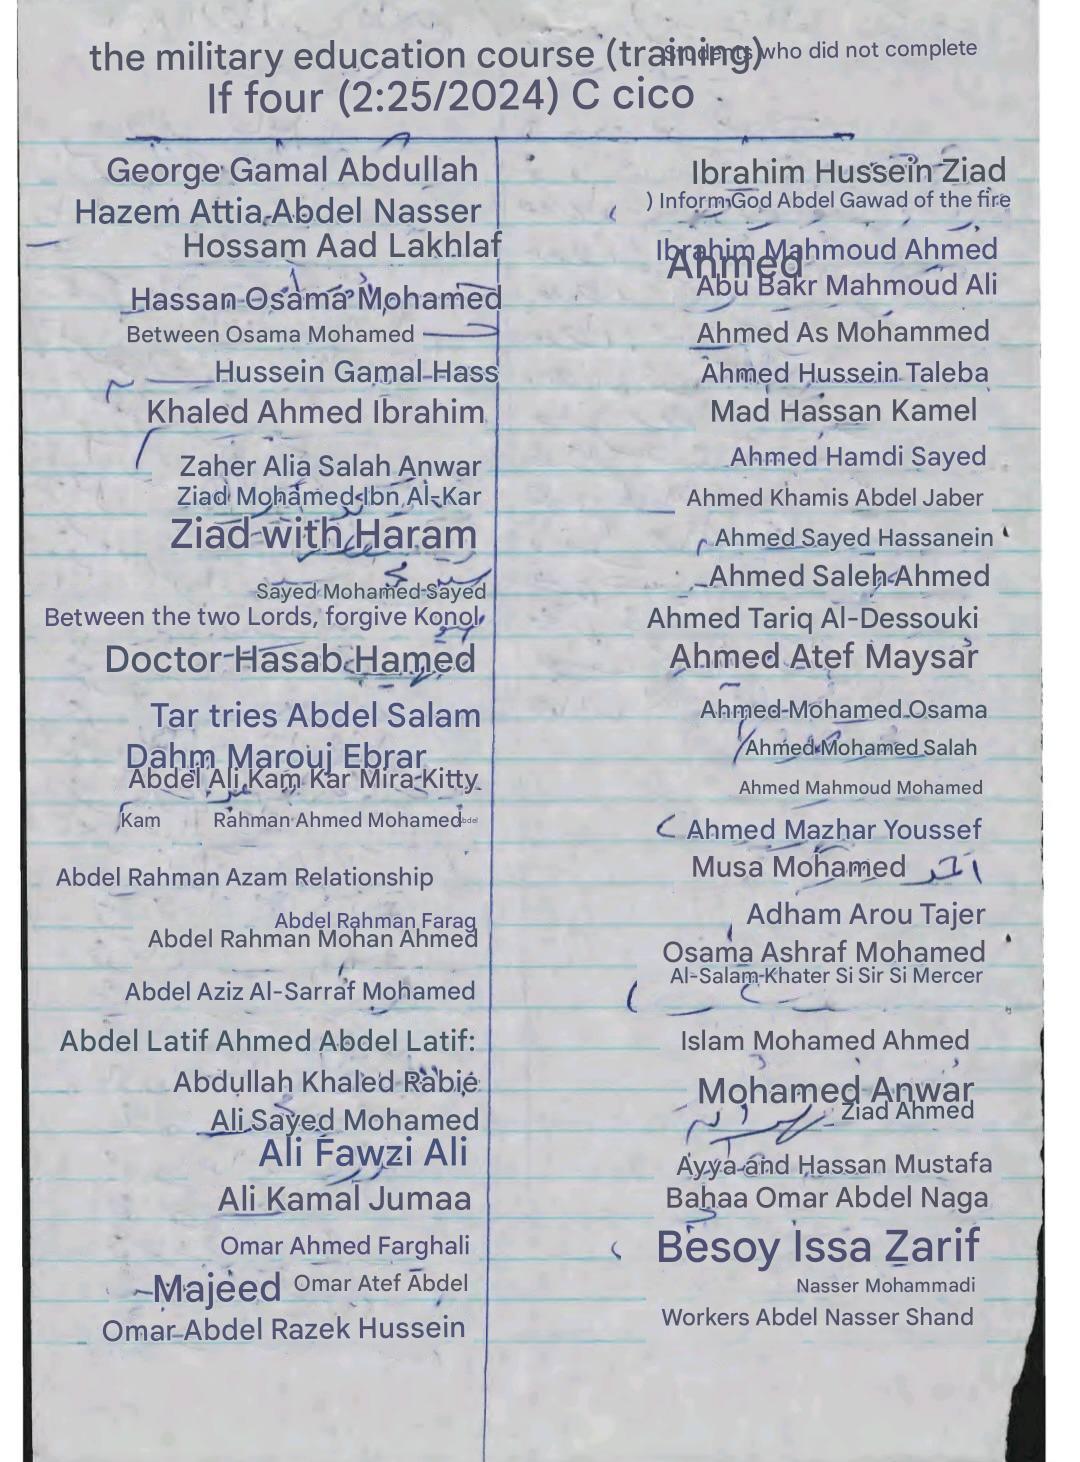 Students who did not complete
the military education course (training)
If four (2:25/2024) C cico
Ibrahim Hussein Ziad
) Inform God Abdel Gawad of the fire
Ibrahim Mahmoud Ahmed
Ahmed
Abu Bakr Mahmoud Ali
Ahmed As Mohammed
Ahmed Hussein Taleba
Mad Hassan Kamel
Ahmed Hamdi Sayed
Ahmed Khamis Abdel Jaber
Ahmed Sayed Hassanein
Ahmed Saleh Ahmed
Ahmed Tariq Al-Dessouki
Ahmed Atef Maysar
Ahmed Mohamed Osama
Ahmed Mohamed Salah
Ahmed Mahmoud Mohamed
Ahmed Mazhar Youssef
Musa Mohamed احمد
Adham Arou Tajer
Osama Ashraf Mohamed
Al-Salam Khater Si Sir Si Mercer
Islam Mohamed Ahmed
Mohamed Anwar
Ziad Ahmed
Ayya and Hassan Mustafa
Bahaa Omar Abdel Naga
Besoy Issa Zarif
Nasser Mohammadi
Workers Abdel Nasser Shand
George Gamal Abdullah
Hazem Attia Abdel Nasser
Hossam Aad Lakhlaf
Hassan Osama Mohamed
Between Osama Mohamed
Hussein Gamal Hass
Khaled Ahmed Ibrahim
Zaher Alia Salah Anwar
Ziad Mohamed Ibn Al-Kar
Ziad with Haram
Sayed Mohamed Sayed
Between the two Lords, forgive Konol
Doctor Hasab Hamed
Tar tries Abdel Salam
Dahm Marouj Ebrar
Abdel Ali Kam Kar Mira Kitty
Kam Rahman Ahmed Mohamed Abdel
Abdel Rahman Azam Relationship
Abdel Rahman Farag
Abdel Rahman Mohan Ahmed
Abdel Aziz Al-Sarraf Mohamed
Abdel Latif Ahmed Abdel Latif:
Abdullah Khaled Rabie
Ali Sayed Mohamed
Ali Fawzi Ali
Ali Kamal Jumaa
Omar Ahmed Farghali
Majeed Omar Atef Abdel
Omar Abdel Razek Hussein